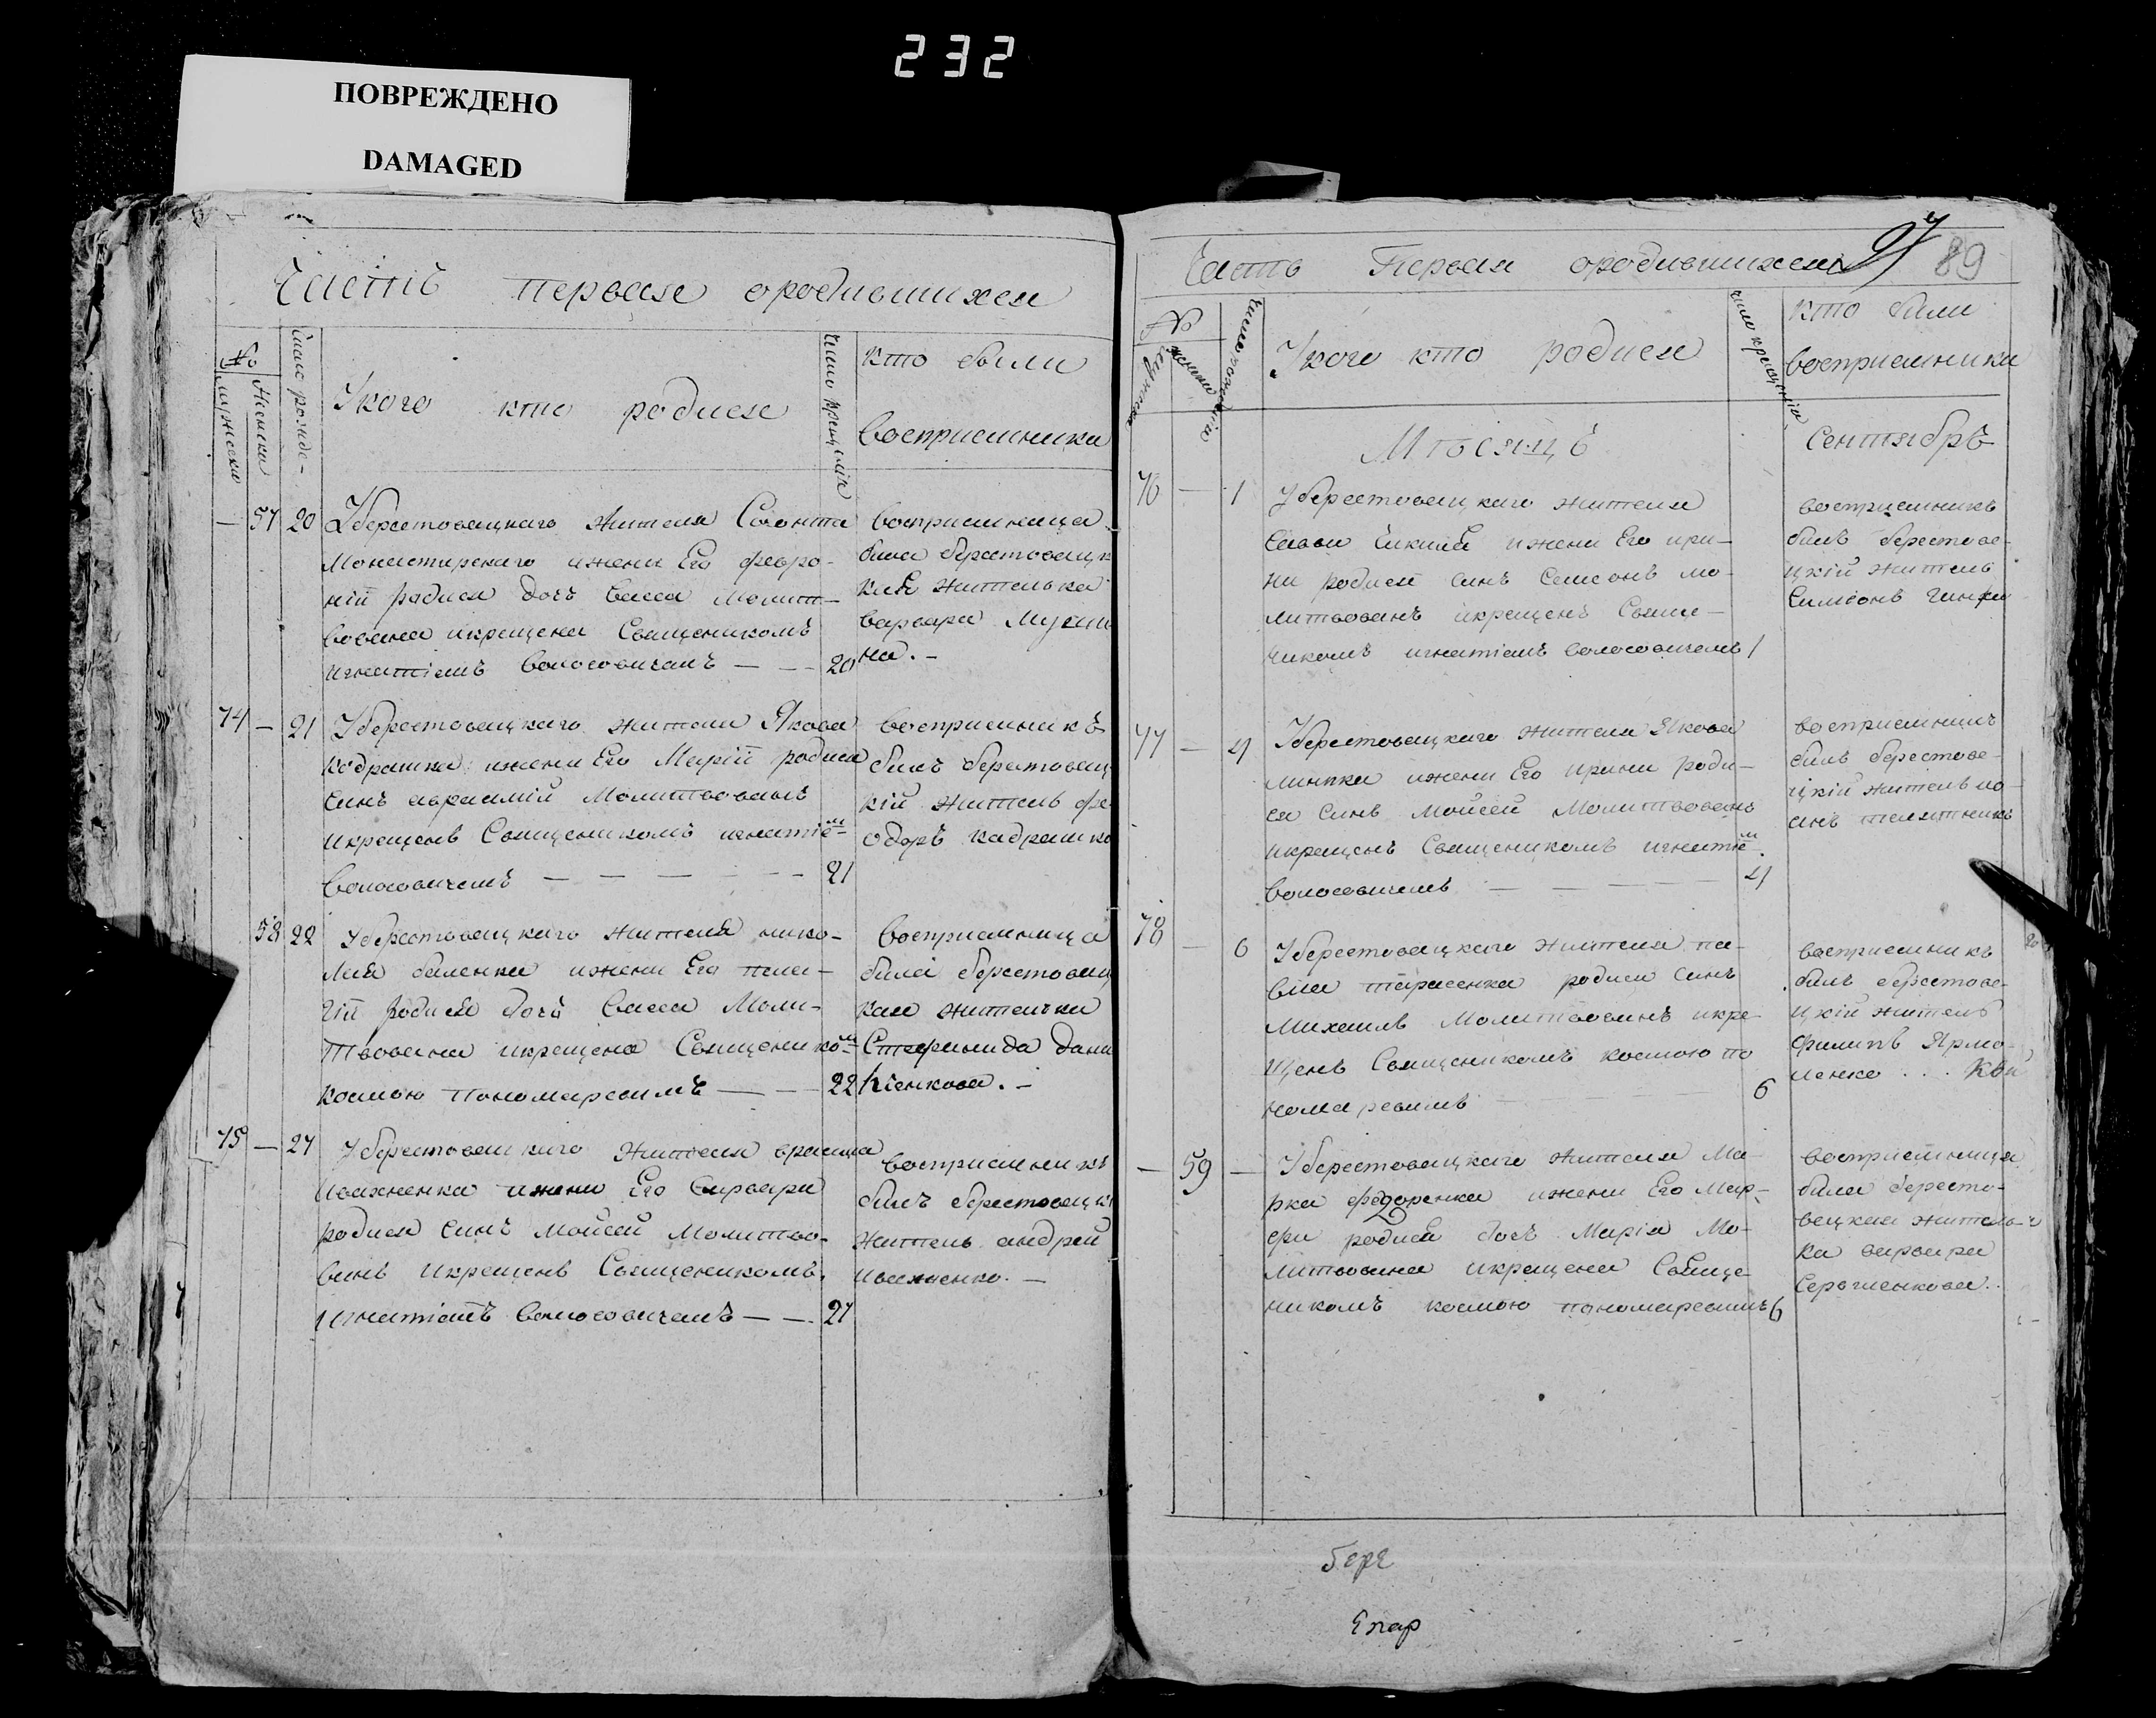 232
ПОВРЕЖДЕНО
DAMAGED
Часть первая ородившихся
№
Мужеска
Женска
Число рожде-
Укого кто родися
Число крещенія
кто были
восприемники
— 57 20 Уберестовецкаго жителя
Монастирскаго ижени Его февро-
ніи родися дочъ Васса Молит-
вована икрещена Священикомъ
игнатіемъ волосовичемъ — — 20
восприемница
била берестовецк
кая жителька
варвара
на. -
74 — 21 Уберестовецкаго жителя Якова
кадрашка ижени Его Маріи родися
Синъ аврамій Молитвованъ
икрещенъ Священикомъ игнатіем
волосовичемъ — — — — — 21
восприемникъ
билъ берестовец
кій житель фе
одоръ кадрашко
58 22 Уберестовецкаго жителя нико-
лая баленка ижени Его пела-
гіи родися дочъ Васса Моли-
твована икрещена Священиком
космою пономаревимъ — — 22
восприемница
била берестовец
кая жителька
Степанида дани
ліенкова. -
75 — 27 Уберестовецкаго жителя
ивахненка ижени Его варвари
родися Синъ мойсей Молитво-
ванъ икрещенъ Священикомъ
игнатіемъ волосовичемъ — — 27
восприемникъ
билъ берестовецкі
житель андрей
ивахненко. —
89
Часть Первая ородившихся
№
мужеска
женска
Число рожденія
Укого кто родися
число крещенія
кто били
восприемники
Мѣсяцъ Сентябрь
76 — 1 Уберестовецкаго жителя
Савви ижени Его ири-
ни родися синъ Семеонъ мо-
литвованъ икрещенъ Свяще-
никомъ игнатіемъ волосовичемъ 1
восприемникъ
билъ берестове-
цкій житель
Симеонъ
77 — 4 Уберестовецкаго жителя Якова
линпка ижени Его ирини роди-
ся синъ мойсей Молитвованъ
икрещенъ Священикомъ игнатіем
волосовичемъ — — — — — 4
восприемникъ
билъ берестове-
цкій житель ио-
анъ
78 — 6 Уберестовецкаго жителя па-
вла тарасенка родися синъ
Михаилъ Молитвованъ икре-
щенъ Священикомъ космою по
номаревимъ 6
восприемникъ
билъ берестове-
цкій житель
филипъ Ярмо-
ленко . . .
— 59 — Уберестовецкаго жителя Ма-
рка федоренка ижени Его Мар-
фи родися дочъ Марія Мо-
литвована икрещена Свяще-
никомъ космою пономаревимъ 6
восприемница
била бересто-
вецкая житель-
ка варвара
Сергіенкова.
бере
Епар